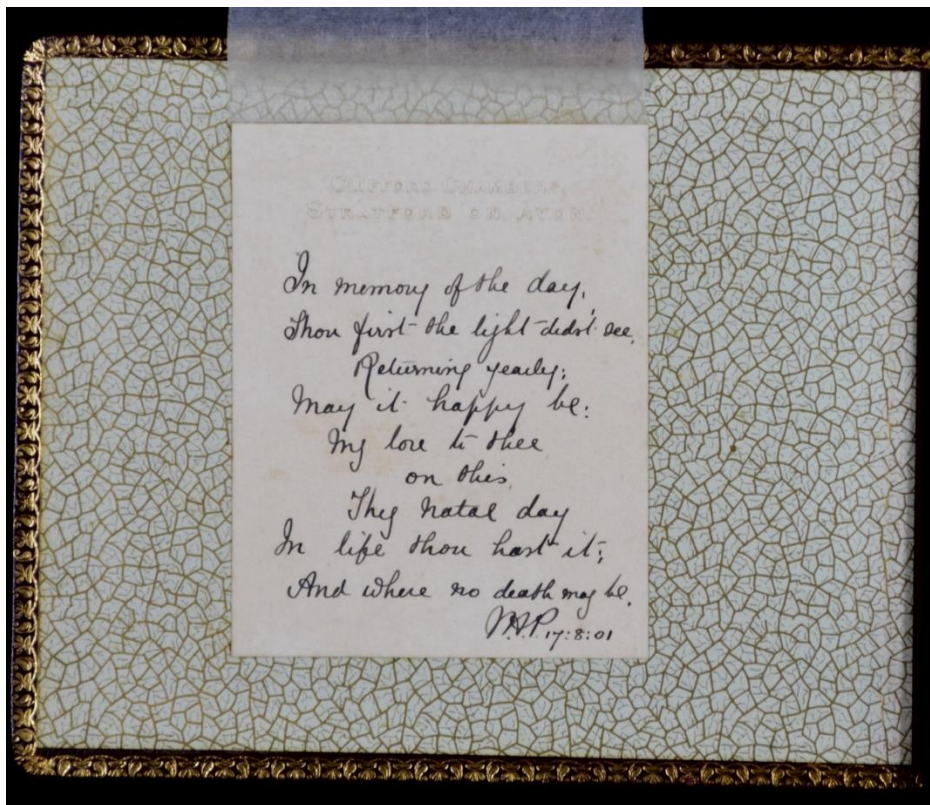 CLIFFORD CHAMBERS,
STRATFORD ON AVON.
In memory of the day,
Thou first the light didst see,
Returning yearly;
May it happy be:
My love to thee
on this,
Thy Natal day
In life thou hast it;
And where no death may be.
17:8:01